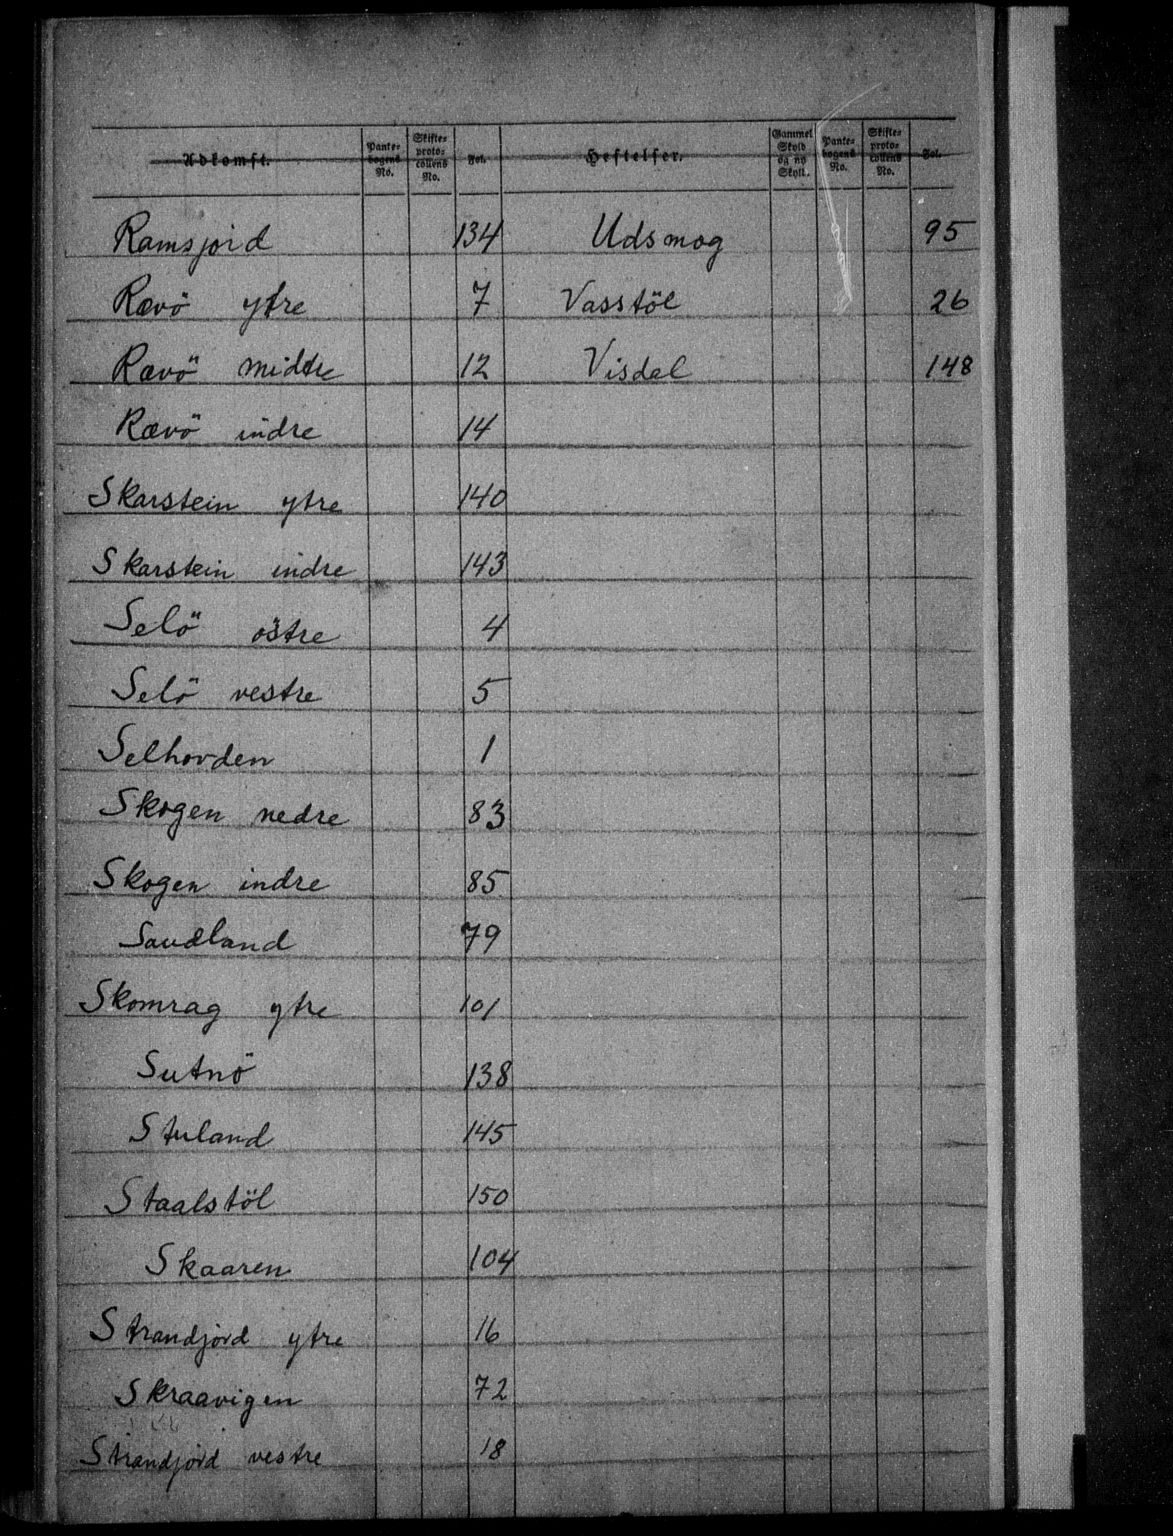 Adkomst. Pante-bogens No. Skifte-proto-collens No. Fol. Heftelser. Gammel Skyld og ny Skyld. Pante-bogens No. Skifte-proto-collens No. Fol.
Ramsjord 134 Udsmog 95
Rævö ytre 7 Vasstöl 26
Rævö midtre 12 Visdal 148
Rævö indre 14
Skarstein ytre 140
Skarstein indre 143
Selö östre 4
Selö vestre 5
Selhovden 1
Skogen nedre 83
Skogen indre 85
Saudland 79
Skomrag ytre 101
Sutnö 138
Stuland 145
Staalstöl 150
Skaaren 104
Strandjord ytre 16
Skraavigen 72
Strandjord vestre 18